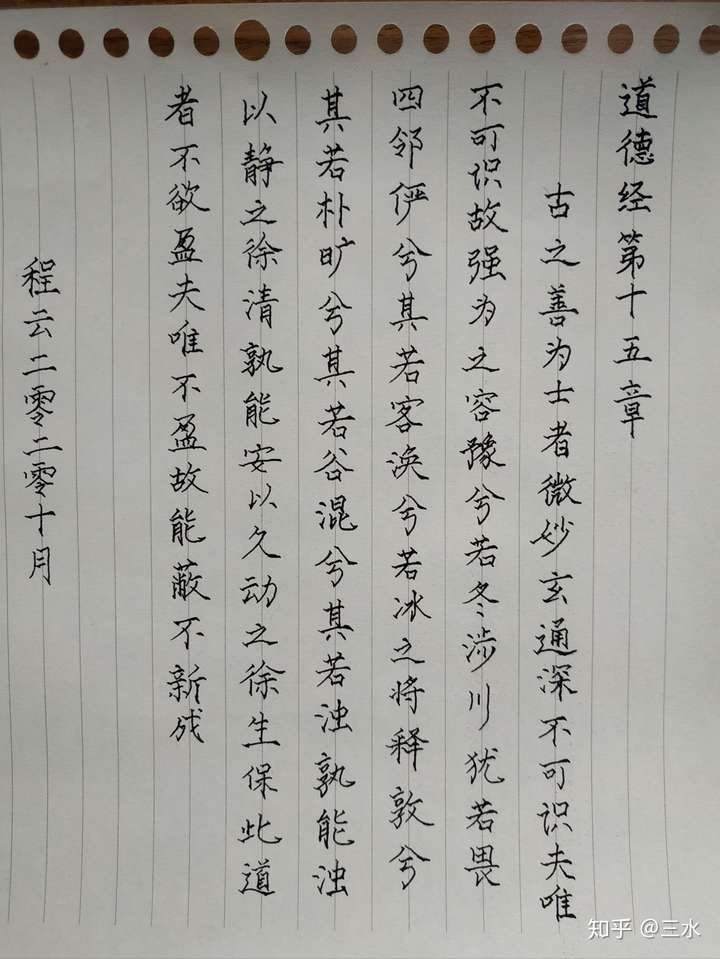 道德经第十五章
古之善为士者微妙玄通深不可识夫唯
不可识故强为之容豫兮若冬涉川犹若畏
四邻俨兮其若客涣兮若冰之将释敦兮
其若朴旷兮其若谷混兮其若浊孰能浊
以静之徐清孰能安以久动之徐生保此道
者不欲盈夫唯不盈故能蔽不新成
程云二零二零十月
知乎 @三水